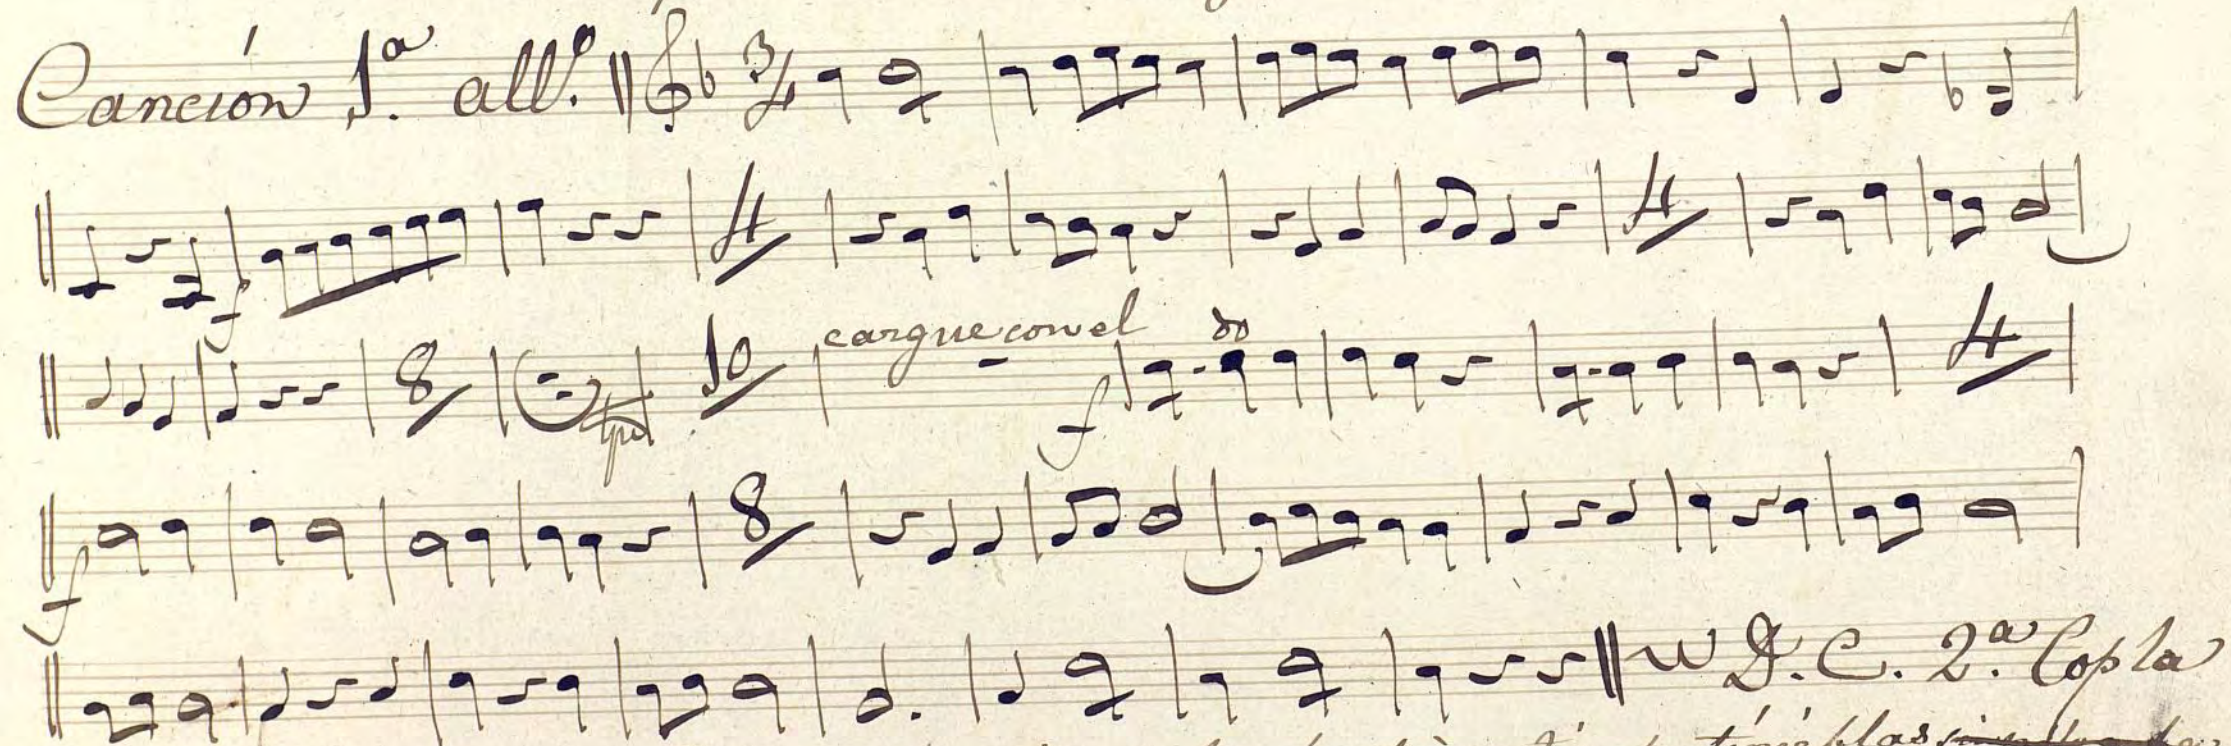 Canción 1.ª all.º 3/4
f 4 4
8 10 cargue con el f 4
f 8
D. C. 2.ª Copla